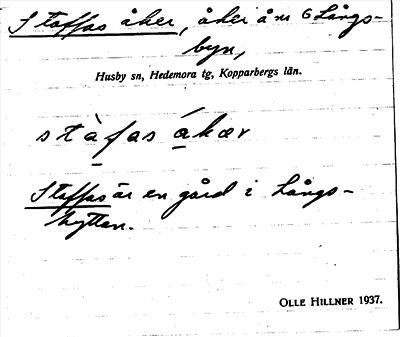 Staffas åker, åker å nr 6 Långs-
byn,
Husby sn, Hedemora tg, Kopparbergs län.
stàfas ákər
Staffas är en gård i Långs-
hyttan.
OLLE HILLNER 1937.